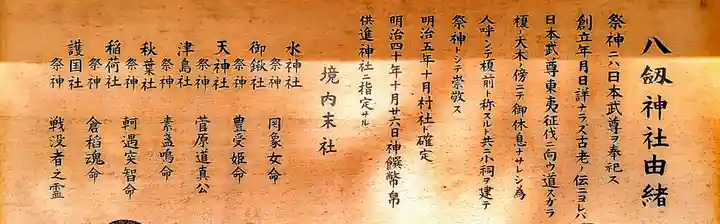 八劔神社由緒
祭神ニハ日本武尊ヲ奉祀ス
創立年月日詳ナラズ古老ノ伝ニヨレバ
日本武尊東夷征伐ニ向ウ道スガラ
榎ノ大木ノ傍ニテ御休息ナサレシ為
人呼ンデ榎前ト称スルト共ニ小祠ヲ建テ
祭神トシテ崇敬ス
明治五年十月村社ト確定
明治四十年十月廿六日神饌幣帛
供進神社ニ指定サル
境内末社
水神社 祭神 罔象女命
御鍬社 祭神 豊受姫命
天神社 祭神 菅原道真公
津島社 祭神 素盞鳴命
秋葉社 祭神 軻遇突智命
稲荷社 祭神 倉稲魂命
護国社 祭神 戦没者之霊